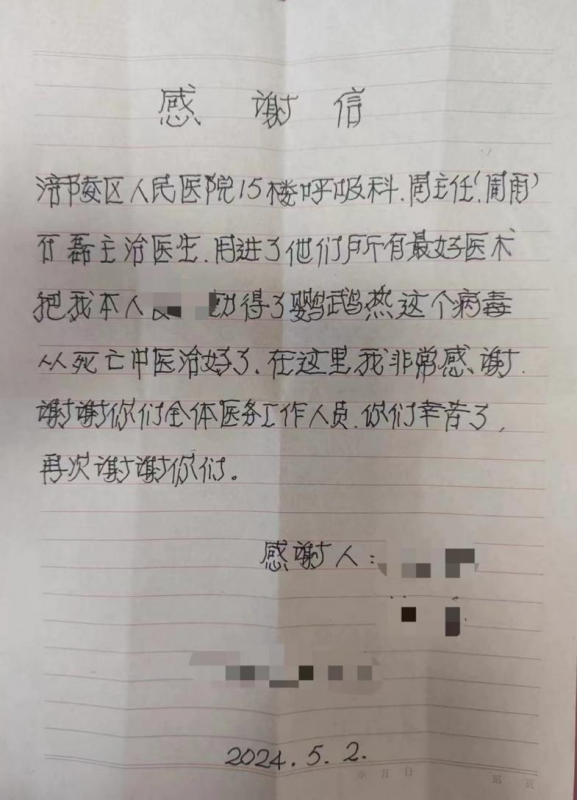 感谢信
涪陵区人民医院15楼呼吸科.周主任(周雨)
磊主治医生.用进了他们所有最好医术
把我本人得了鹦鹉热这个病毒
从死亡中医治好了、在这里我非常感谢.
谢谢你们全体医务工作人员.你们辛苦了,
再次谢谢你们。
感谢人:
2024.5.2.
年月日 第 页